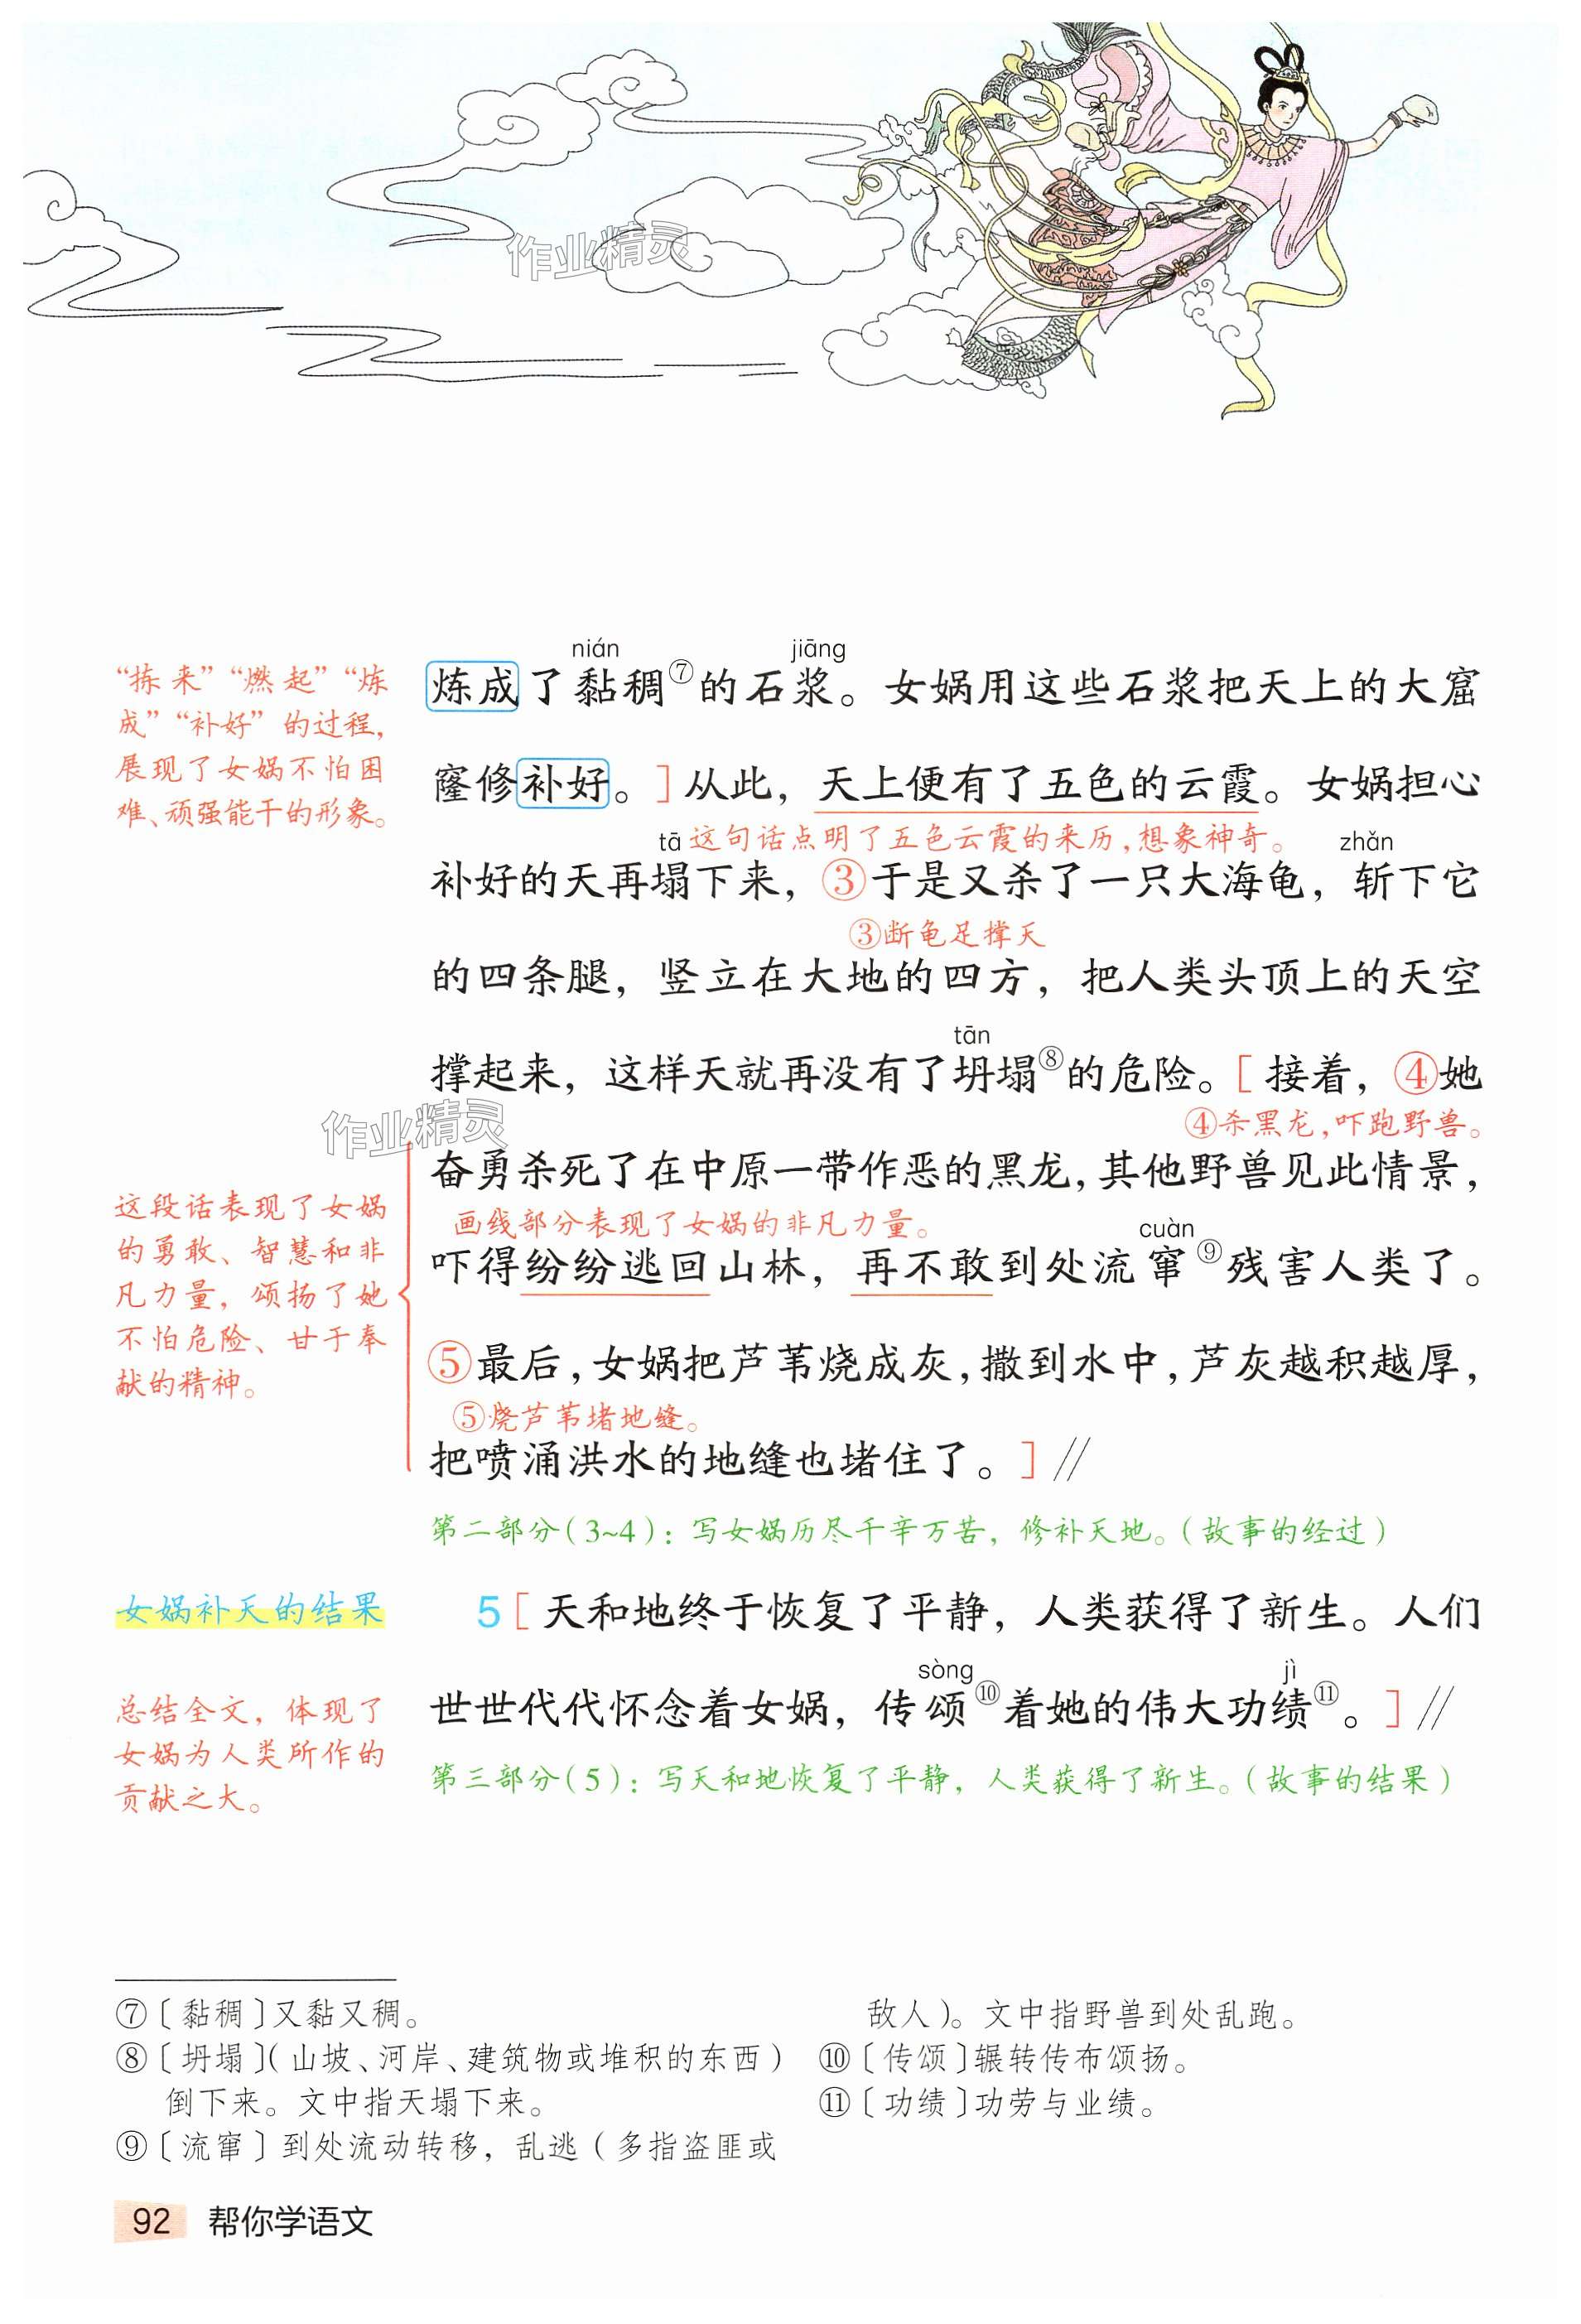 作业精灵
“拣来”“燃起”“炼
成”“补好”的过程，
展现了女娲不怕困
难、顽强能干的形象。
nián jiāng
炼成了黏稠⑦的石浆。女娲用这些石浆把天上的大窟
窿修补好。］从此，天上便有了五色的云霞。女娲担心
tā 这句话点明了五色云霞的来历，想象神奇。 zhǎn
补好的天再塌下来，③于是又杀了一只大海龟，斩下它
③断龟足撑天
的四条腿，竖立在大地的四方，把人类头顶上的天空
tān
撑起来，这样天就再没有了坍塌⑧的危险。［接着，④她
④杀黑龙，吓跑野兽。
作业精灵
奋勇杀死了在中原一带作恶的黑龙，其他野兽见此情景，
画线部分表现了女娲的非凡力量。 cuàn
吓得纷纷逃回山林，再不敢到处流窜⑨残害人类了。
⑤最后，女娲把芦苇烧成灰，撒到水中，芦灰越积越厚，
⑤烧芦苇堵地缝。
把喷涌洪水的地缝也堵住了。］//
这段话表现了女娲
的勇敢、智慧和非
凡力量，颂扬了她
不怕危险、甘于奉
献的精神。
第二部分（3~4）：写女娲历尽千辛万苦，修补天地。（故事的经过）
女娲补天的结果
5［天和地终于恢复了平静，人类获得了新生。人们
sòng jì
世世代代怀念着女娲，传颂⑩着她的伟大功绩⑪。］//
总结全文，体现了
女娲为人类所作的
贡献之大。
第三部分（5）：写天和地恢复了平静，人类获得了新生。（故事的结果）
⑦〔黏稠〕又黏又稠。
⑧〔坍塌〕（山坡、河岸、建筑物或堆积的东西）
倒下来。文中指天塌下来。
⑨〔流窜〕到处流动转移，乱逃（多指盗匪或
敌人）。文中指野兽到处乱跑。
⑩〔传颂〕辗转传布颂扬。
⑪〔功绩〕功劳与业绩。
92 帮你学语文